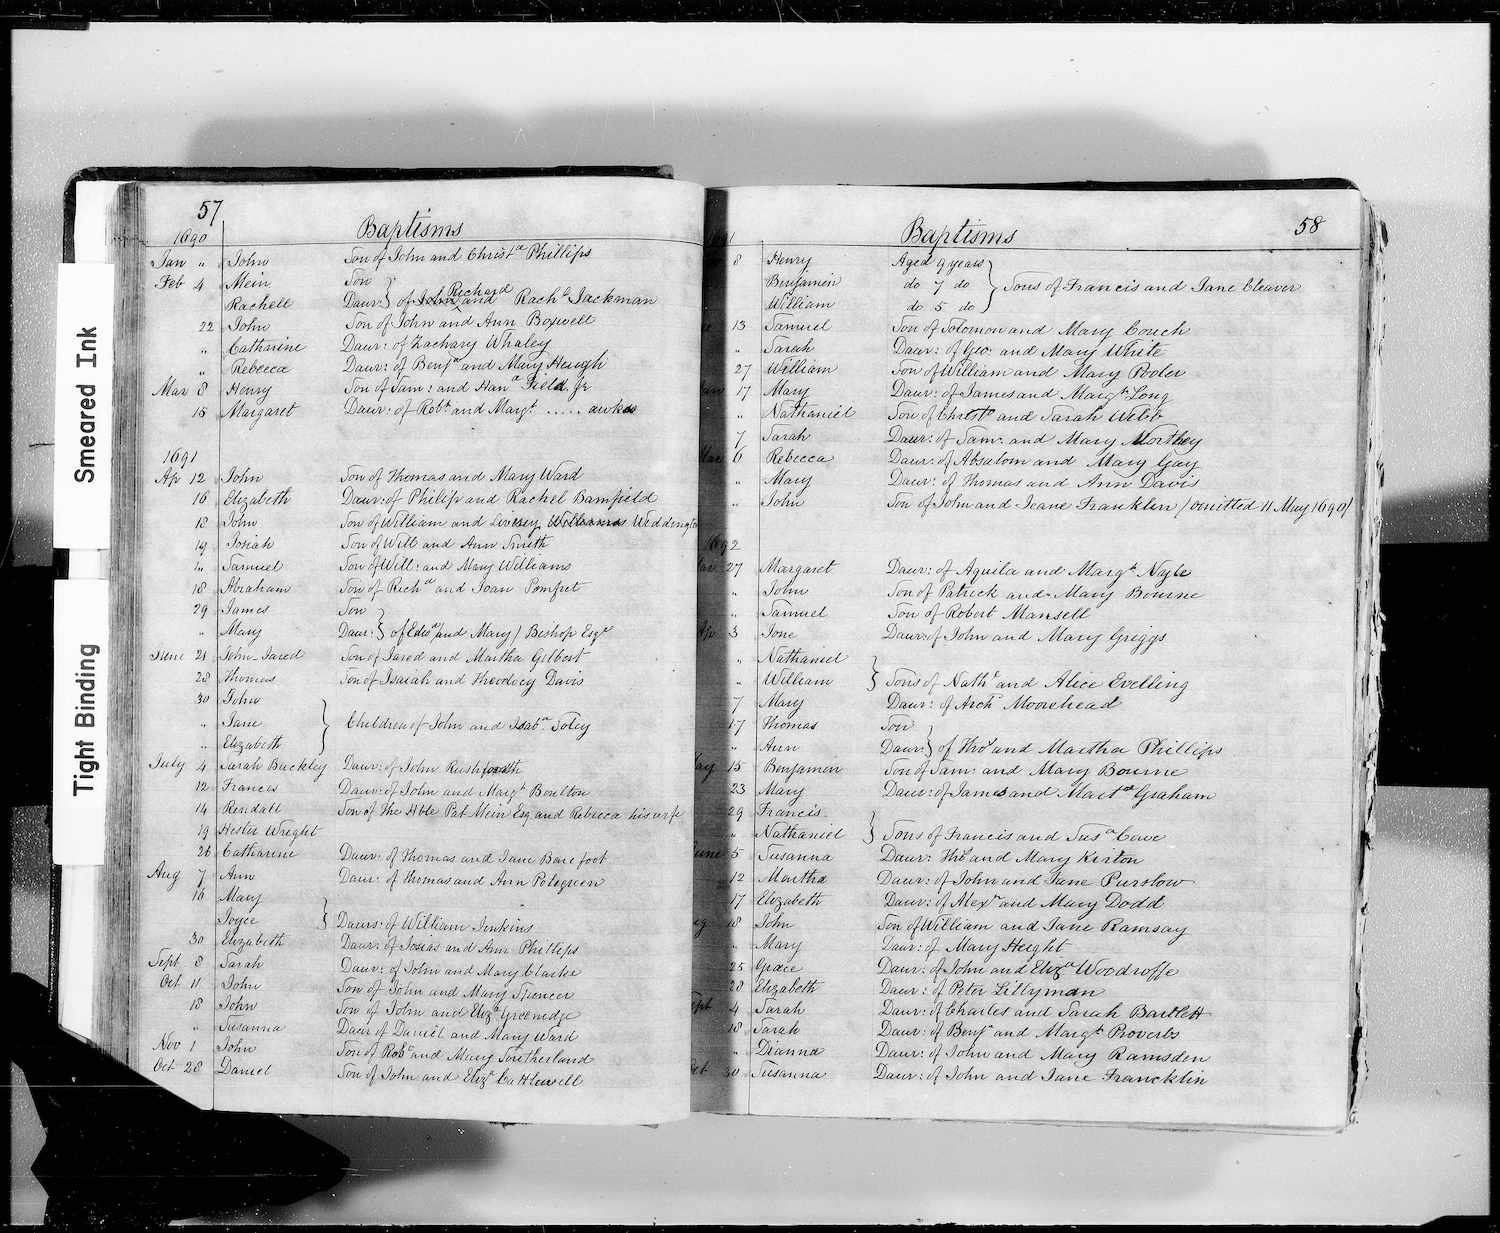 Smeared Ink
Tight Binding
57
Baptisms
1690
Jan " John Son of John and Christa Phillips
Feb 4 Mein Son
Rachell Daur: } of John and Richard Racha Jackman
22 John Son of John and Ann Boxwell
" Catharine Daur: of Zachary Whaley
" Rebecca Daur: of Benja and Mary Heugh
Mar 8 Henry Son of Sam: and Hana Field Jr
15 Margaret Daur: of Robt and Margt ..... awkes
1691
Ap 12 John Son of Thomas and Mary Ward
16 Elizabeth Daur: of Philip and Rachel Bamfield
18 John Son of William and Livesey Williams Widdington
19 Josiah Son of Will and Ann Smith
" Samuel Son of Will: and Mary Williams
18 Abraham Son of Richd and Joan Pomfret
29 James Son
" Mary Daur: } of Edwd and Mary / Bishop Esqr
June 21 John-Jared Son of Jared and Martha Gilbert
28 Thomas Son of Isaiah and Theodocy Davis
30 John
" Jane } Children of John and Isaba Toley
" Elizabeth
July 4 Sarah Buckley Daur: of John Rushforth
12 Frances Daur: of John and Margt Boulton
14 Rendall Son of the Hble Pat Mein Esq and Rebecca his wife
19 Hester Wright
26 Catharine Daur: of Thomas and Jane Barefoot
Aug 7 Ann Daur: of Thomas and Ann Polegreen
16 Mary
Joyce } Daurs: of William Jenkins
30 Elizabeth Daur: of Josias and Ann Phillips
Sept 8 Sarah Daur: of John and Mary Clarke
Oct 11 John Son of John and Mary Spencer
18 John Son of John and Eliza Greenidge
" Susanna Daur of Daniel and Mary Ward
Nov 1 John Son of Robt and Mary Southerland
Oct 28 Daniel Son of John and Eliza Cattlewell
Baptisms
58
8 Henry Aged 9 years
Benjamin do 7 do } Sons of Francis and Jane Cleaver
William do 5 do
13 Samuel Son of Solomon and Mary Couch
" Sarah Daur: of Geo: and Mary White
27 William Son of William and Mary Pooler
17 Mary Daur: of James and Margt Long
" Nathaniel Son of Christr and Sarah Webb
7 Sarah Daur: of Sam: and Mary Worthey
Mar 6 Rebecca Daur: of Absalom and Mary Gay
" Mary Daur: of Thomas and Ann Davis
" John Son of John and Jeane Franklin / omitted 11 May 1690/
1692
Mar 27 Margaret Daur: of Aquila and Margt Nyle
" John Son of Patrick and Mary Bourne
" Samuel Son of Robert Mansell
Ap 3 Jone Daur: of John and Mary Griggs
" Nathaniel
" William } Sons of Nathl and Alice Evelling
7 Mary Daur: of Archd Moorehead
17 Thomas Son
" Ann Daur: } of Thos and Martha Phillips
May 15 Benjamin Son of Sam: and Mary Bourne
23 Mary Daur: of James and Marta Graham
29 Francis
" Nathaniel } Sons of Francis and Susa Cave
June 5 Susanna Daur: Thos and Mary Kirton
12 Martha Daur: of John and Jane Purslow
17 Elizabeth Daur: of Alexr and Mary Dodd
18 John Son of William and Jane Ramsay
" Mary Daur: of Mary Height
25 Grace Daur: of John and Eliza Woodroffe
28 Elizabeth Daur: of Peter Lillyman
Sept 4 Sarah Daur: of Charles and Sarah Bartlett
18 Sarah Daur: of Benja and Margt Proverbs
" Dianna Daur: of John and Mary Ramsden
Oct 30 Susanna Daur: of John and Jane Francklin